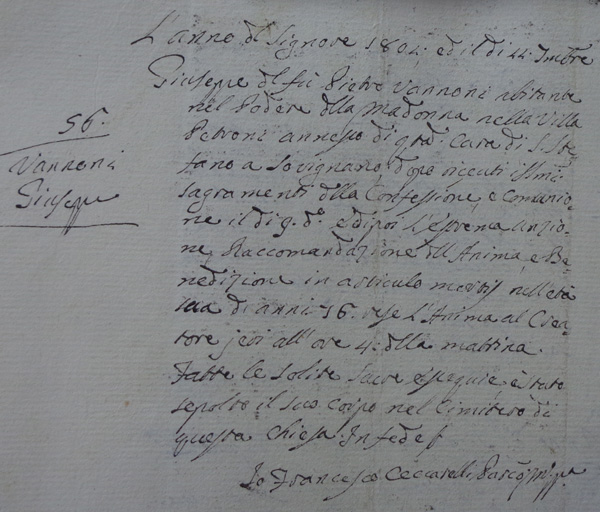 L'anno dl Signore 1804: ed il dì 44: 7mbre
Giuseppe dl fù Pietro Vannoni abitante
nel Podere dlla Madonna nella Villa
Petroni annesso di qta Cura di S. Ste
56.
fano a Sovignano, dopo riceuti i SSmi
Vannoni
sagramenti dlla Confessione, e Comunio-
Giuseppe
ne il dì 9. do e dipoi l'Estrema Unzio-
ne, Raccomandazione dll'Anima, e Be-
nedizione in articulo mortis nell'età
sua di anni 56. rese l'Anima al Crea-
tore jeri all'ore 4. dlla mattina.
Fatte le solite sacre esequie, è stato
sepolto il suo Corpo nel Cimitero di
questa Chiesa In fede
Io Francesco Ceccarelli